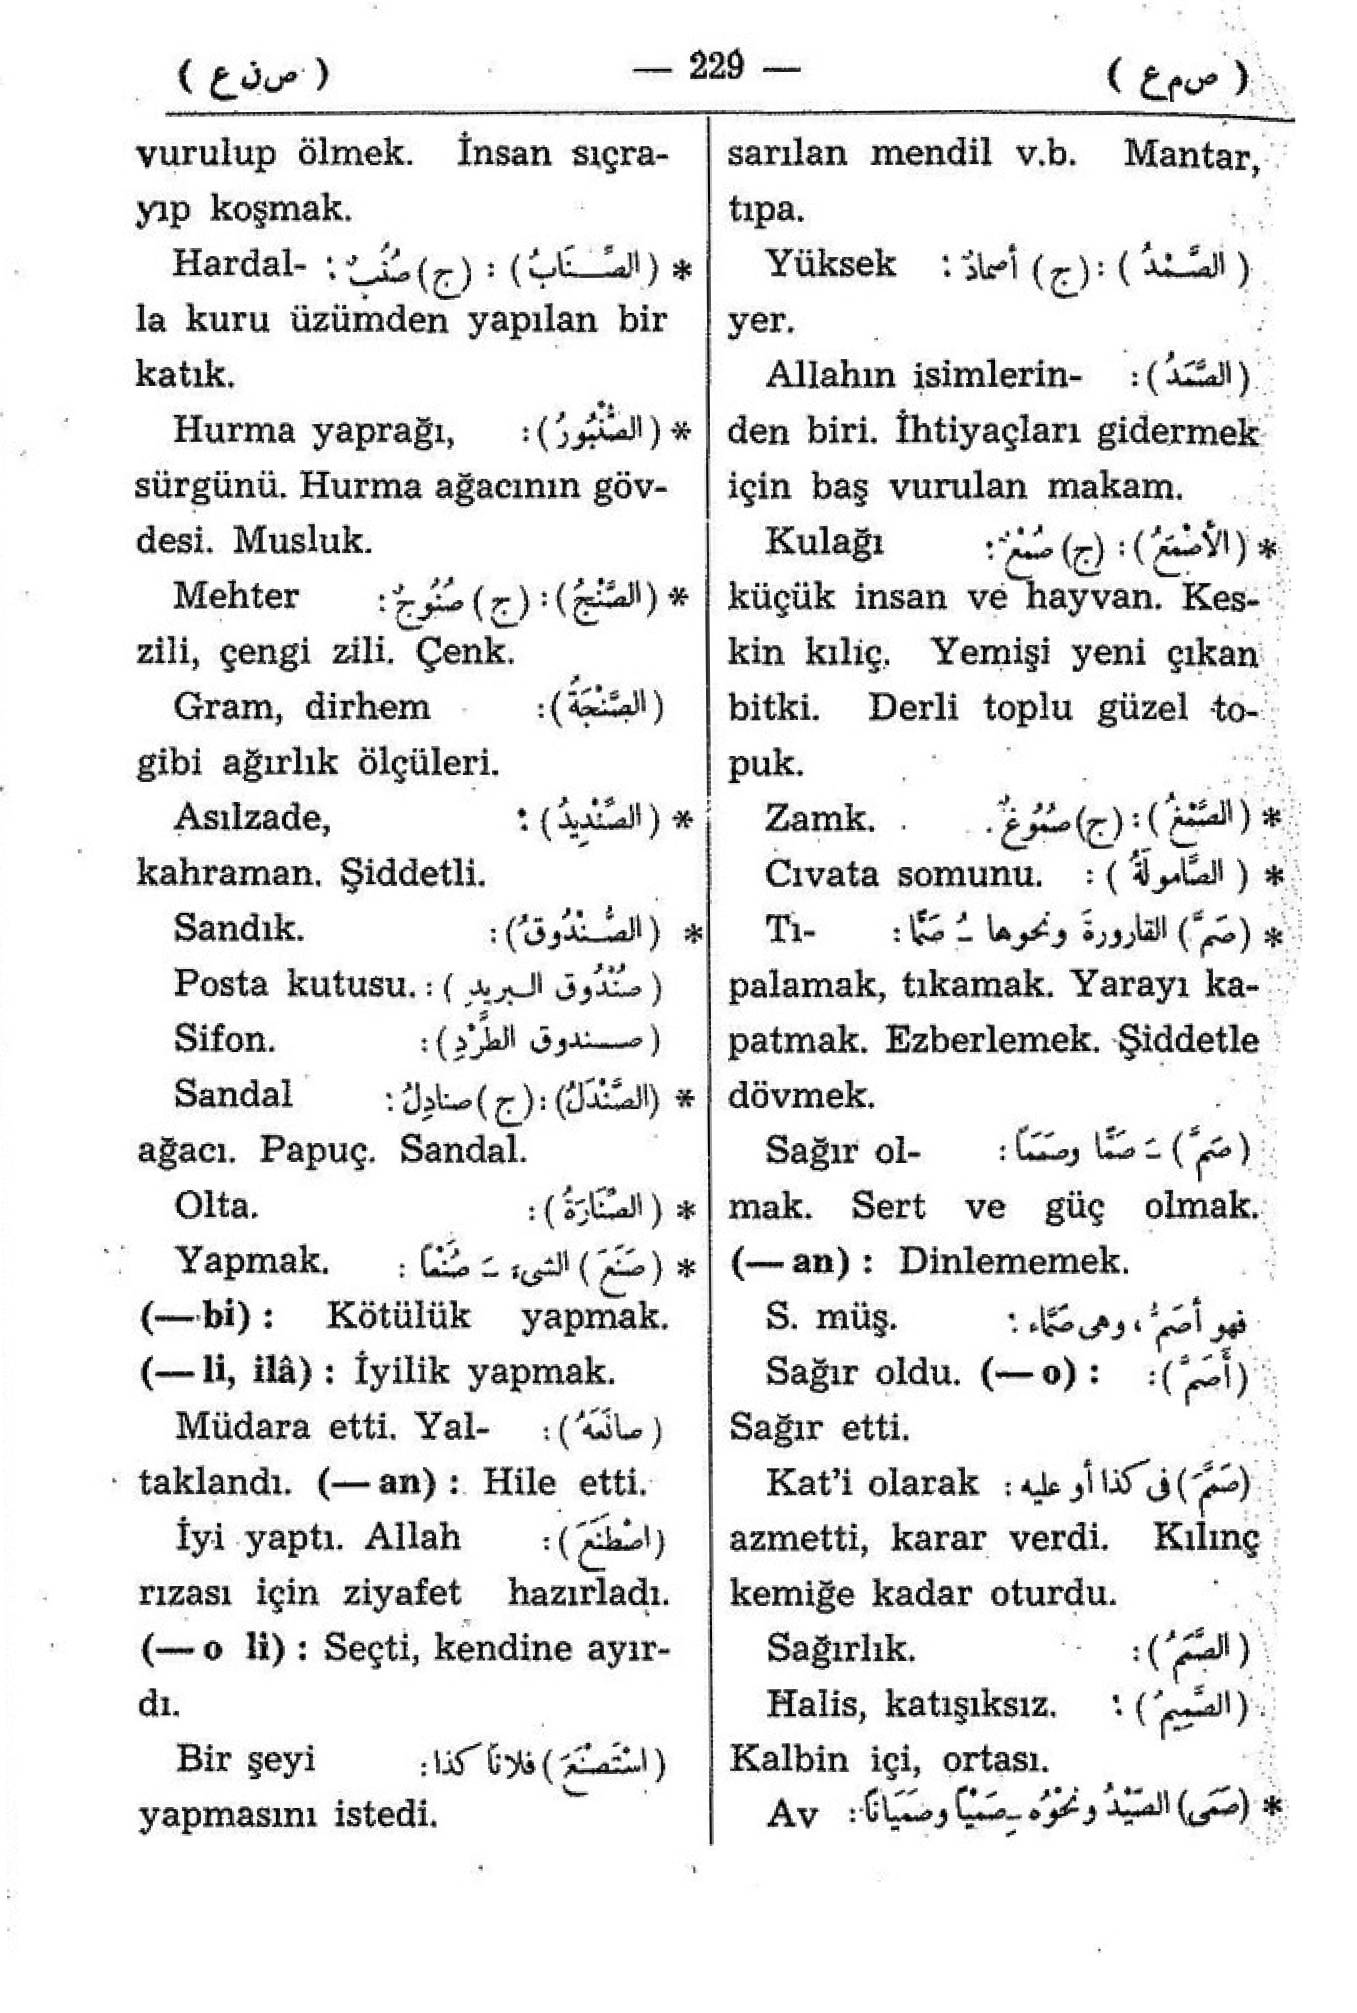 ( صمع ) — 229 — ( صنع )
sarılan mendil v.b. Mantar,
tıpa.
( الصَّمْدُ ) : (ج) أصمادٌ : Yüksek
yer.
(الصَّمَدُ) : Allahın isimlerin-
den biri. İhtiyaçları gidermek
için baş vurulan makam.
* (الأَصْمَعُ) : (ج) صُمْعٌ : Kulağı
küçük insan ve hayvan. Kes-
kin kılıç. Yemişi yeni çıkan
bitki. Derli toplu güzel to-
puk.
* (الصَّمْغُ) : (ج) صُمُوغٌ . Zamk.
* ( الصَّامولَةُ ) : Cıvata somunu.
* (صَمَّ) القارورةَ ونحوها ـُ صَمًّا : Tı-
palamak, tıkamak. Yarayı ka-
patmak. Ezberlemek. Şiddetle
dövmek.
(صَمَّ) ـَ صَمًّا وصَمَمًا : Sağır ol-
mak. Sert ve güç olmak.
(— an) : Dinlememek.
فهو أصَمُّ ، وهى صَمَّاء : S. müş.
(أَصَمَّ) : Sağır oldu. (— o) :
Sağır etti.
(صَمَّمَ) فى كذا أو عليه : Kat'i olarak
azmetti, karar verdi. Kılınç
kemiğe kadar oturdu.
(الصَّمَمُ) : Sağırlık.
(الصَّمِيمُ) : Halis, katışıksız.
Kalbin içi, ortası.
* (صَمَى) الصَّيْدُ ونَحْوُهُ ـِ صَمْيًا وصَمَيَانًا : Av
vurulup ölmek. İnsan sıçra-
yıp koşmak.
* (الصِّنَابُ) : (ج) صُنُبٌ : Hardal-
la kuru üzümden yapılan bir
katık.
* (الصُّنْبُورُ) : Hurma yaprağı,
sürgünü. Hurma ağacının göv-
desi. Musluk.
* (الصَّنْجُ) : (ج) صُنُوجٌ : Mehter
zili, çengi zili. Çenk.
(الصَّنْجَةُ) : Gram, dirhem
gibi ağırlık ölçüleri.
* (الصِّنْدِيدُ) : Asılzade,
kahraman. Şiddetli.
* (الصُّنْدُوقُ) : Sandık.
(صُنْدُوق البريد) : Posta kutusu.
(صندوق الطَّرْدِ) : Sifon.
* (الصَّنْدَلُ) : (ج) صنادِلُ : Sandal
ağacı. Papuç. Sandal.
* (الصِّنَّارَةُ) : Olta.
* (صَنَعَ) الشىءَ ـَ صُنْعًا : Yapmak.
(— bi) : Kötülük yapmak.
(— li, ilâ) : İyilik yapmak.
(صانَعَهُ) : Müdara etti. Yal-
taklandı. (— an) : Hile etti.
(اصْطَنَعَ) : İyi yaptı. Allah
rızası için ziyafet hazırladı.
(— o li) : Seçti, kendine ayır-
dı.
(اسْتَصْنَعَ) فلانًا كذا : Bir şeyi
yapmasını istedi.